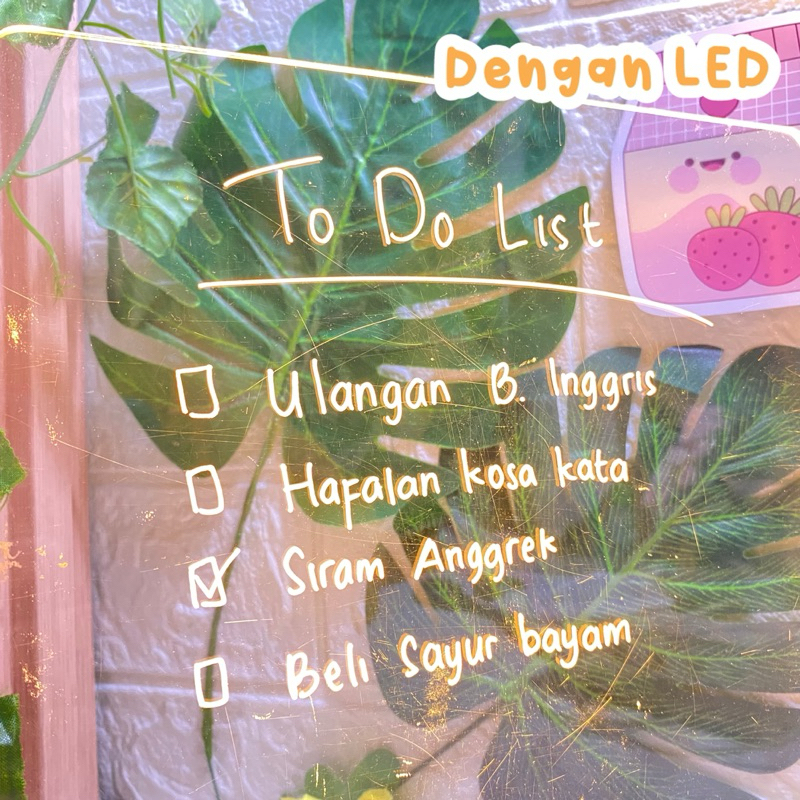 Dengan LED
To Do List
Ulangan B. Inggris
Hafalan kosa kata
Siram Anggrek
Beli Sayur bayam